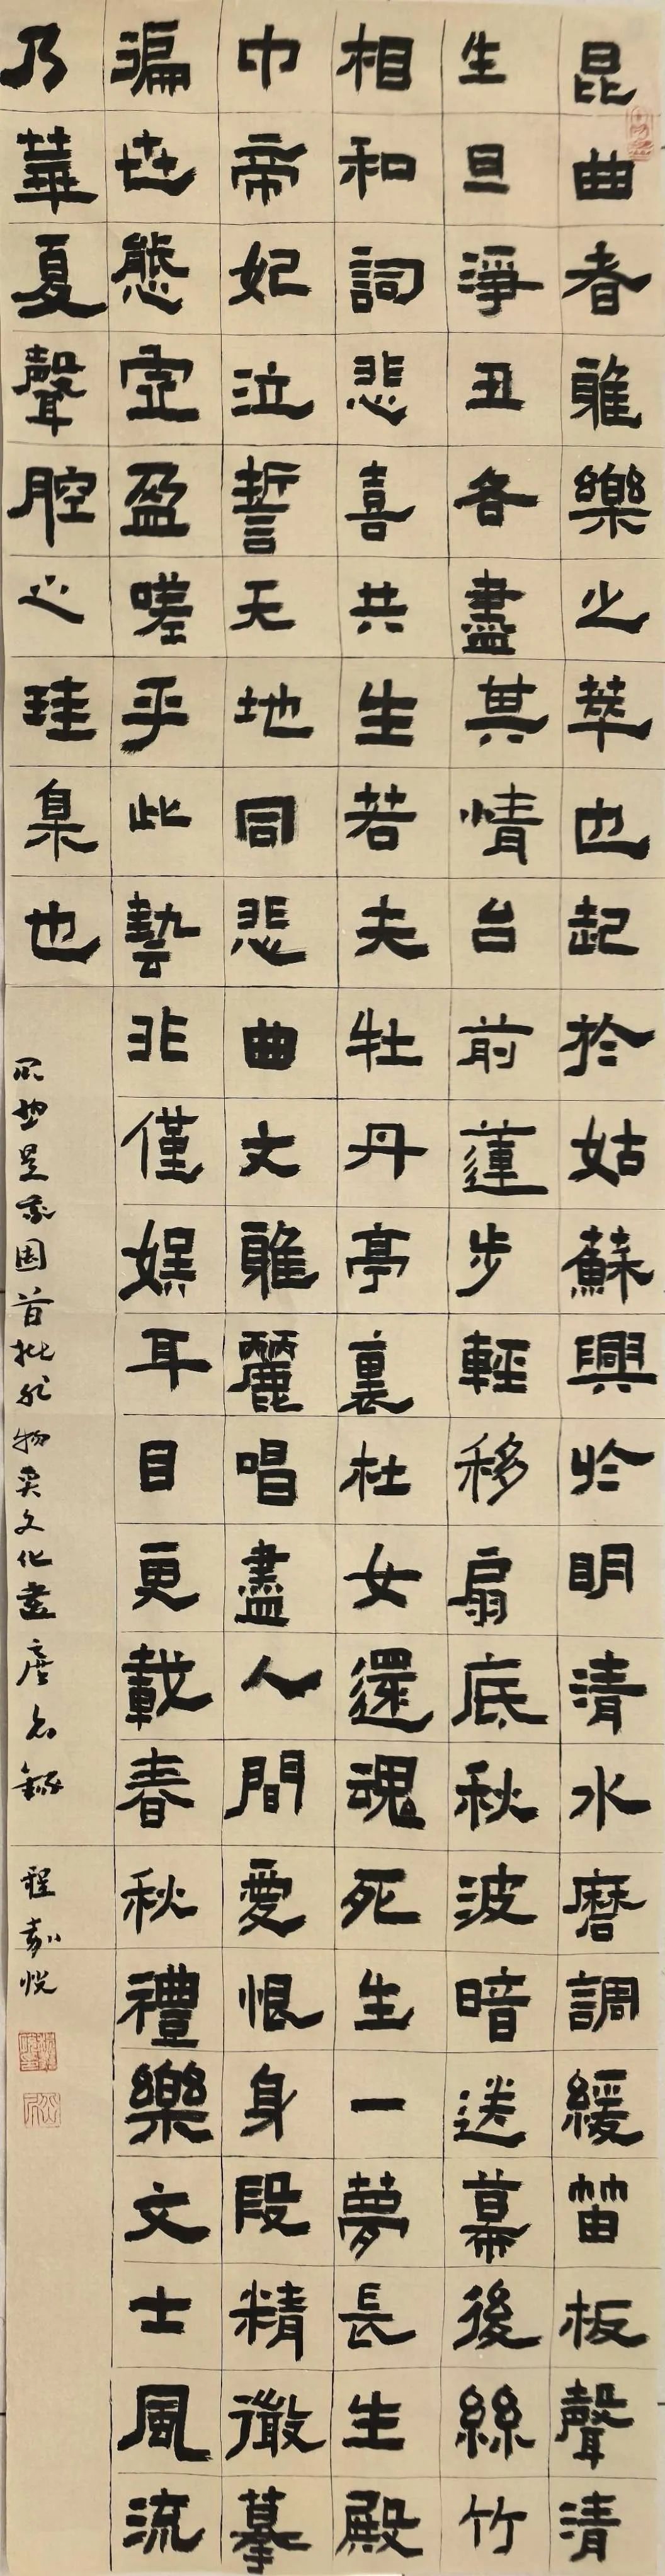 昆曲者雅樂之萃也起於姑蘇興於明清水磨調緩笛板聲清
生旦淨丑各盡其情台前蓮步輕移扇底秋波暗送幕後絲竹
相和詞悲喜共生若夫牡丹亭裏杜女還魂死生一夢長生殿
中帝妃泣誓天地同悲曲文雅麗唱盡人間愛恨身段精微摹
遍世態虛盈嗟乎此藝非僅娱耳目更載春秋禮樂文士風流
乃華夏聲腔之珪臬也
是我国首批非物质文化遗产名録
程嘉悦